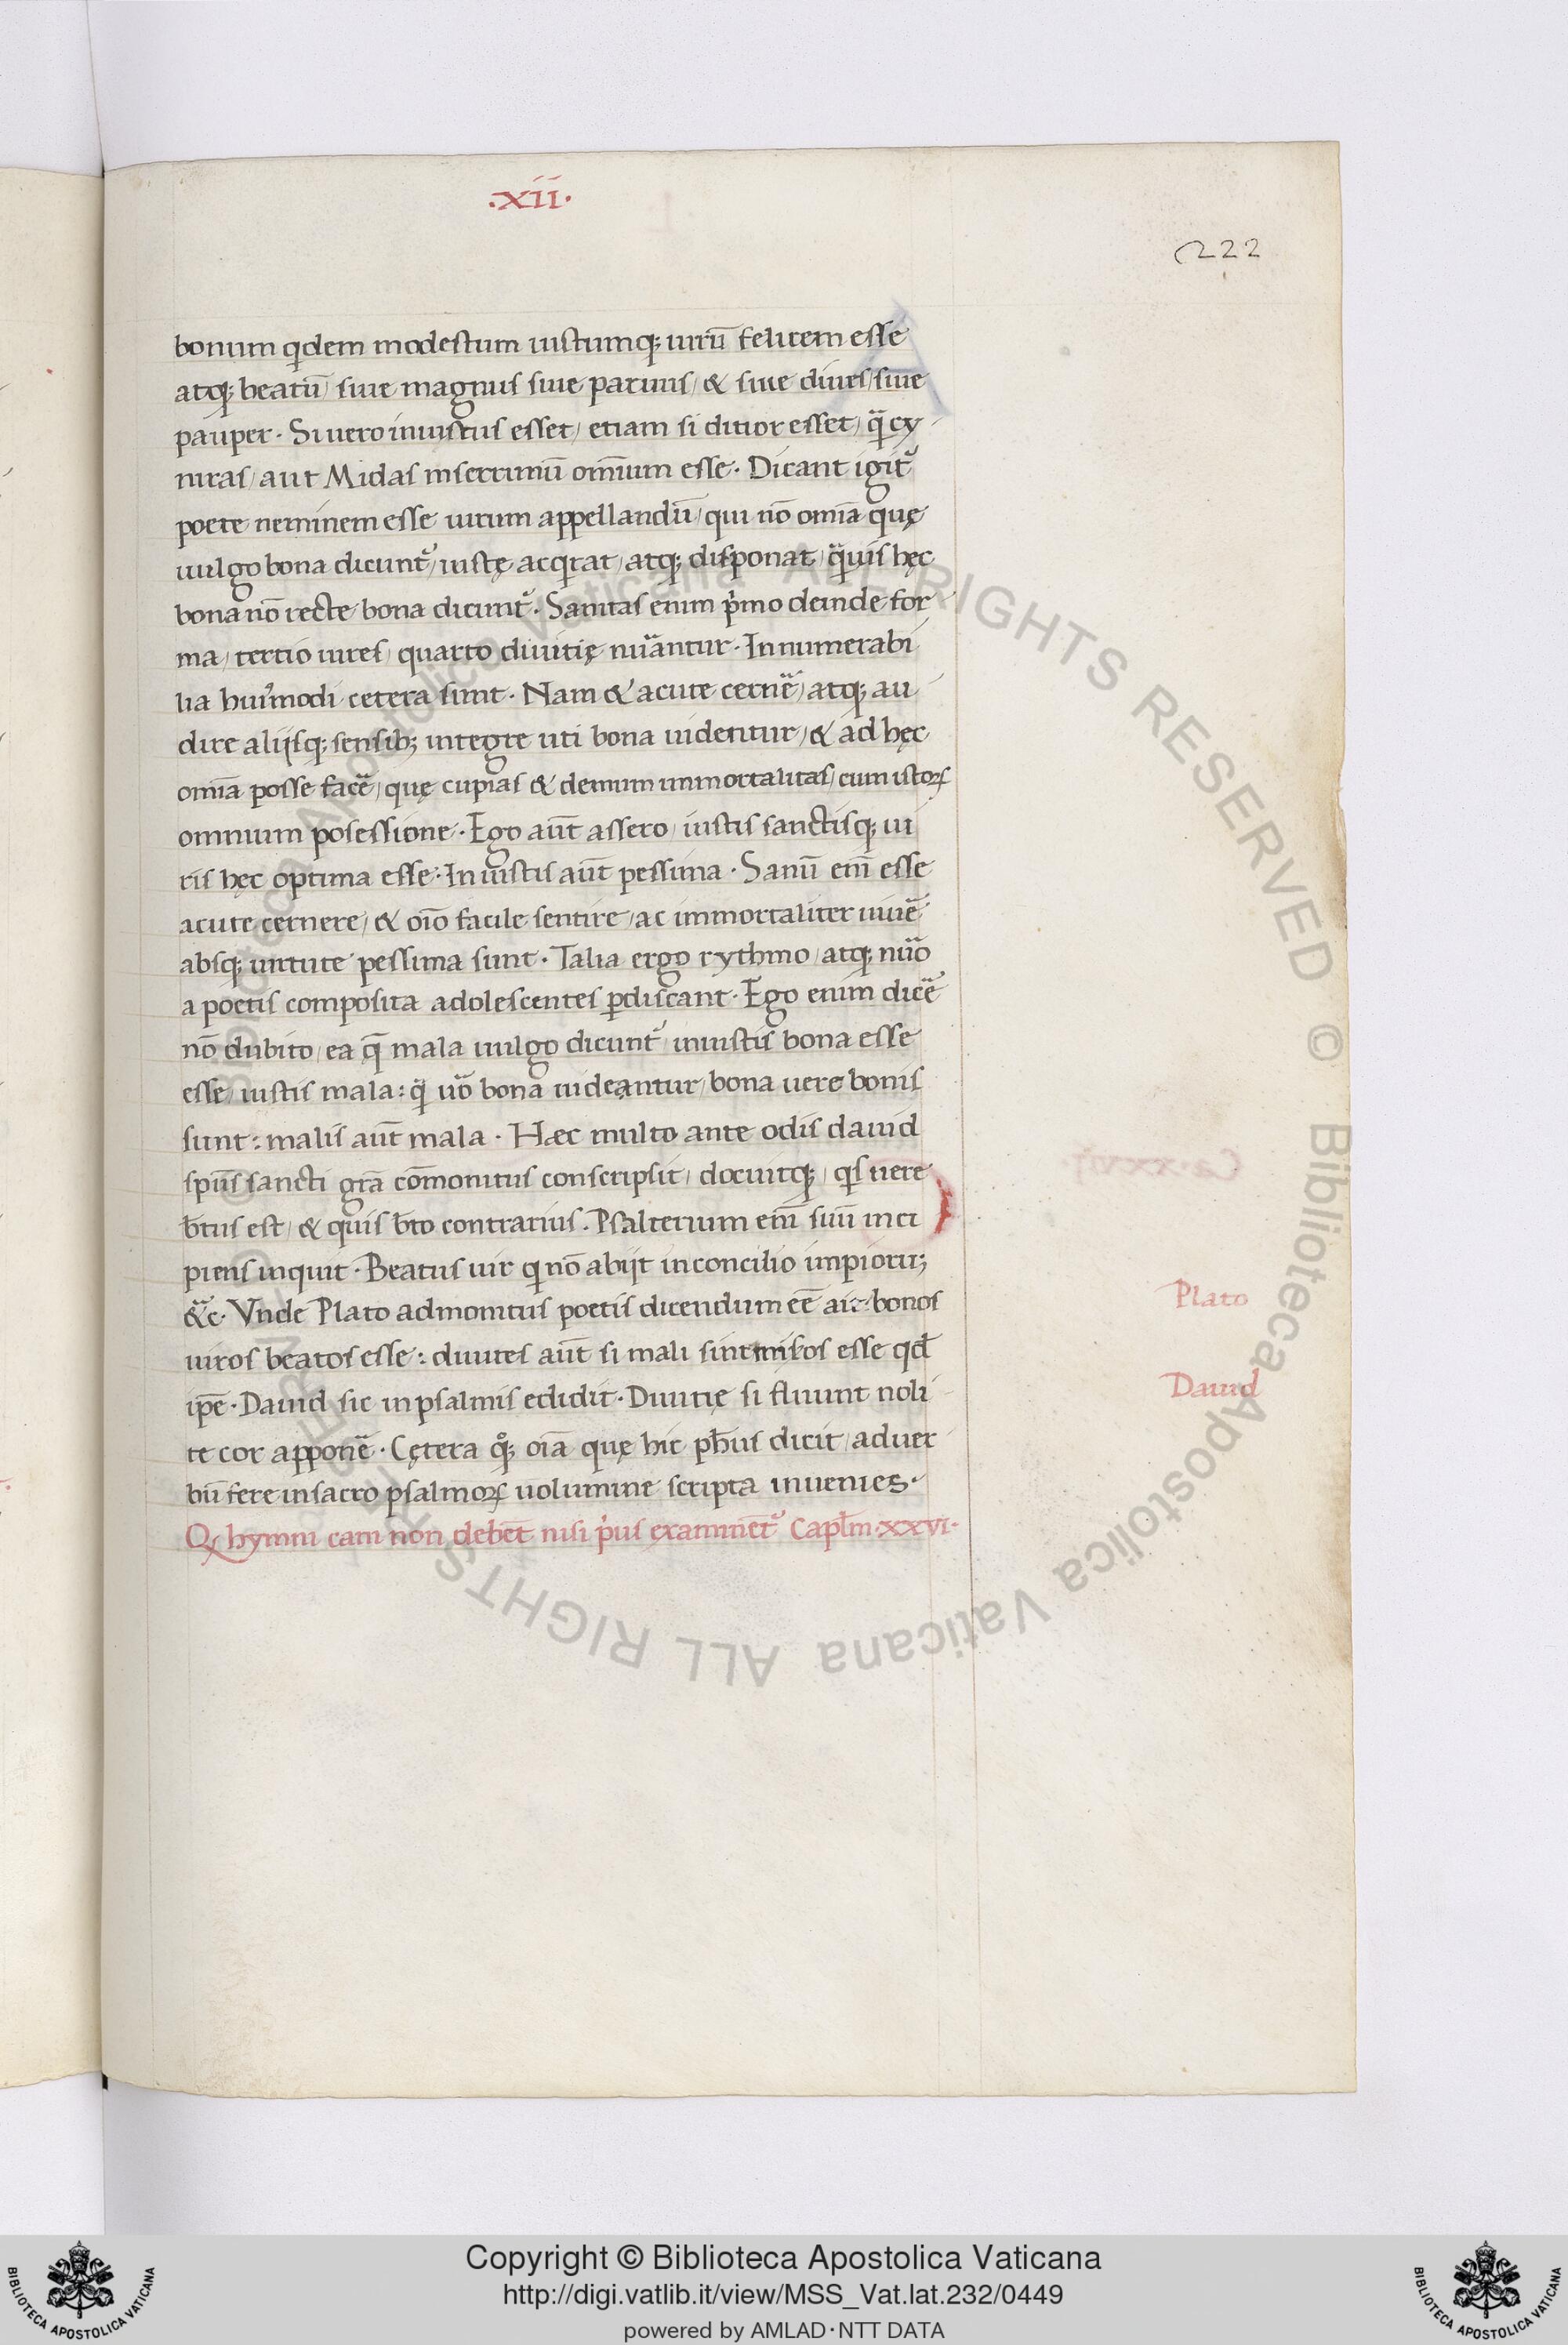 .xii.
222
bonum qͥdem modestum iustumq; uirū felicem esse
atq; beatū / siue magnus siue paruus / & siue diues / siue
pauper. Si uero iniustus esset / etiam si ditior esset / qͣ̄ cy
niras / aut Midas miserrimū omīum esse. Dicant igitᷣ
poete neminem esse uirum appellandū / qui nō omīa quę
uulgo bona dicuntᷣ / iustę acqͥrat / atq; disponat / qͣ̄uis hęc
bona nō recte bona dicuntᷣ. Sanitas enim pͥmo deinde for
ma / tertio uires / quarto diuitię nūantur. Innumerabi
lia huiꝰmodi cetera sunt. Nam & acute cernē / atq; au
dire alijsq; sensib; integre uti bona uidentur / & ad hęc
omīa posse facē / quę cupias & demum immortalitas / cum istoꝝ
omnium posessione. Ego aūt assero / iustis sanctisq; ui
ris hęc optima esse. Iniustis aūt pessima. Sanū enī esse
acute cernere / & oīo facile sentire / ac immortaliter uiuē
absq; uirtute pessima sunt. Talia ergo rythmo / atq; nūo
a poetis composita adolescentes ꝑdiscant. Ego enim dicē
nō dubito / ea q̄ mala uulgo dicuntᷣ iniustis bona esse
esse / iustis mala: q̄ uō bona uideantur / bona uere bonis
sunt: malis aūt mala. Hæc multo ante odis dauid
spūs sancti grā cōmonitus conscripsit / docuitq; qͥs uere
b̄tus est / & quis b̄to contrarius. Psalterium enī suū inci
piens inquit. Beatus uir qͥ nō abijt in concilio impioru;
&c̄. Vnde Plato admonitus poetis dicendum eē ait bonos
uiros beatos esse: diuites aūt si mali sint misos esse qd̄
ipē. Dauid sic in psalmis edidit. Diuitię si fluunt noli
te cor apponē. Cętera qͦq; oīa quę hic ph̄us dicit / ad uer
bū fere in sacro psalmoꝝ uolumine scripta inuenies.
Plato
Dauid
Q hymni cani non debēt nisi pͥus examinētᷣ Capl̄m. xxvi.
Copyright © Biblioteca Apostolica Vaticana
http://digi.vatlib.it/view/MSS_Vat.lat.232/0449
powered by AMLAD·NTT DATA
BIBLIOTECA APOSTOLICA VATICANA
BIBLIOTECA APOSTOLICA VATICANA
© Biblioteca Apostolica Vaticana ALL RIGHTS RESERVED © Biblioteca Apostolica Vaticana ALL RIGHTS RESERVED